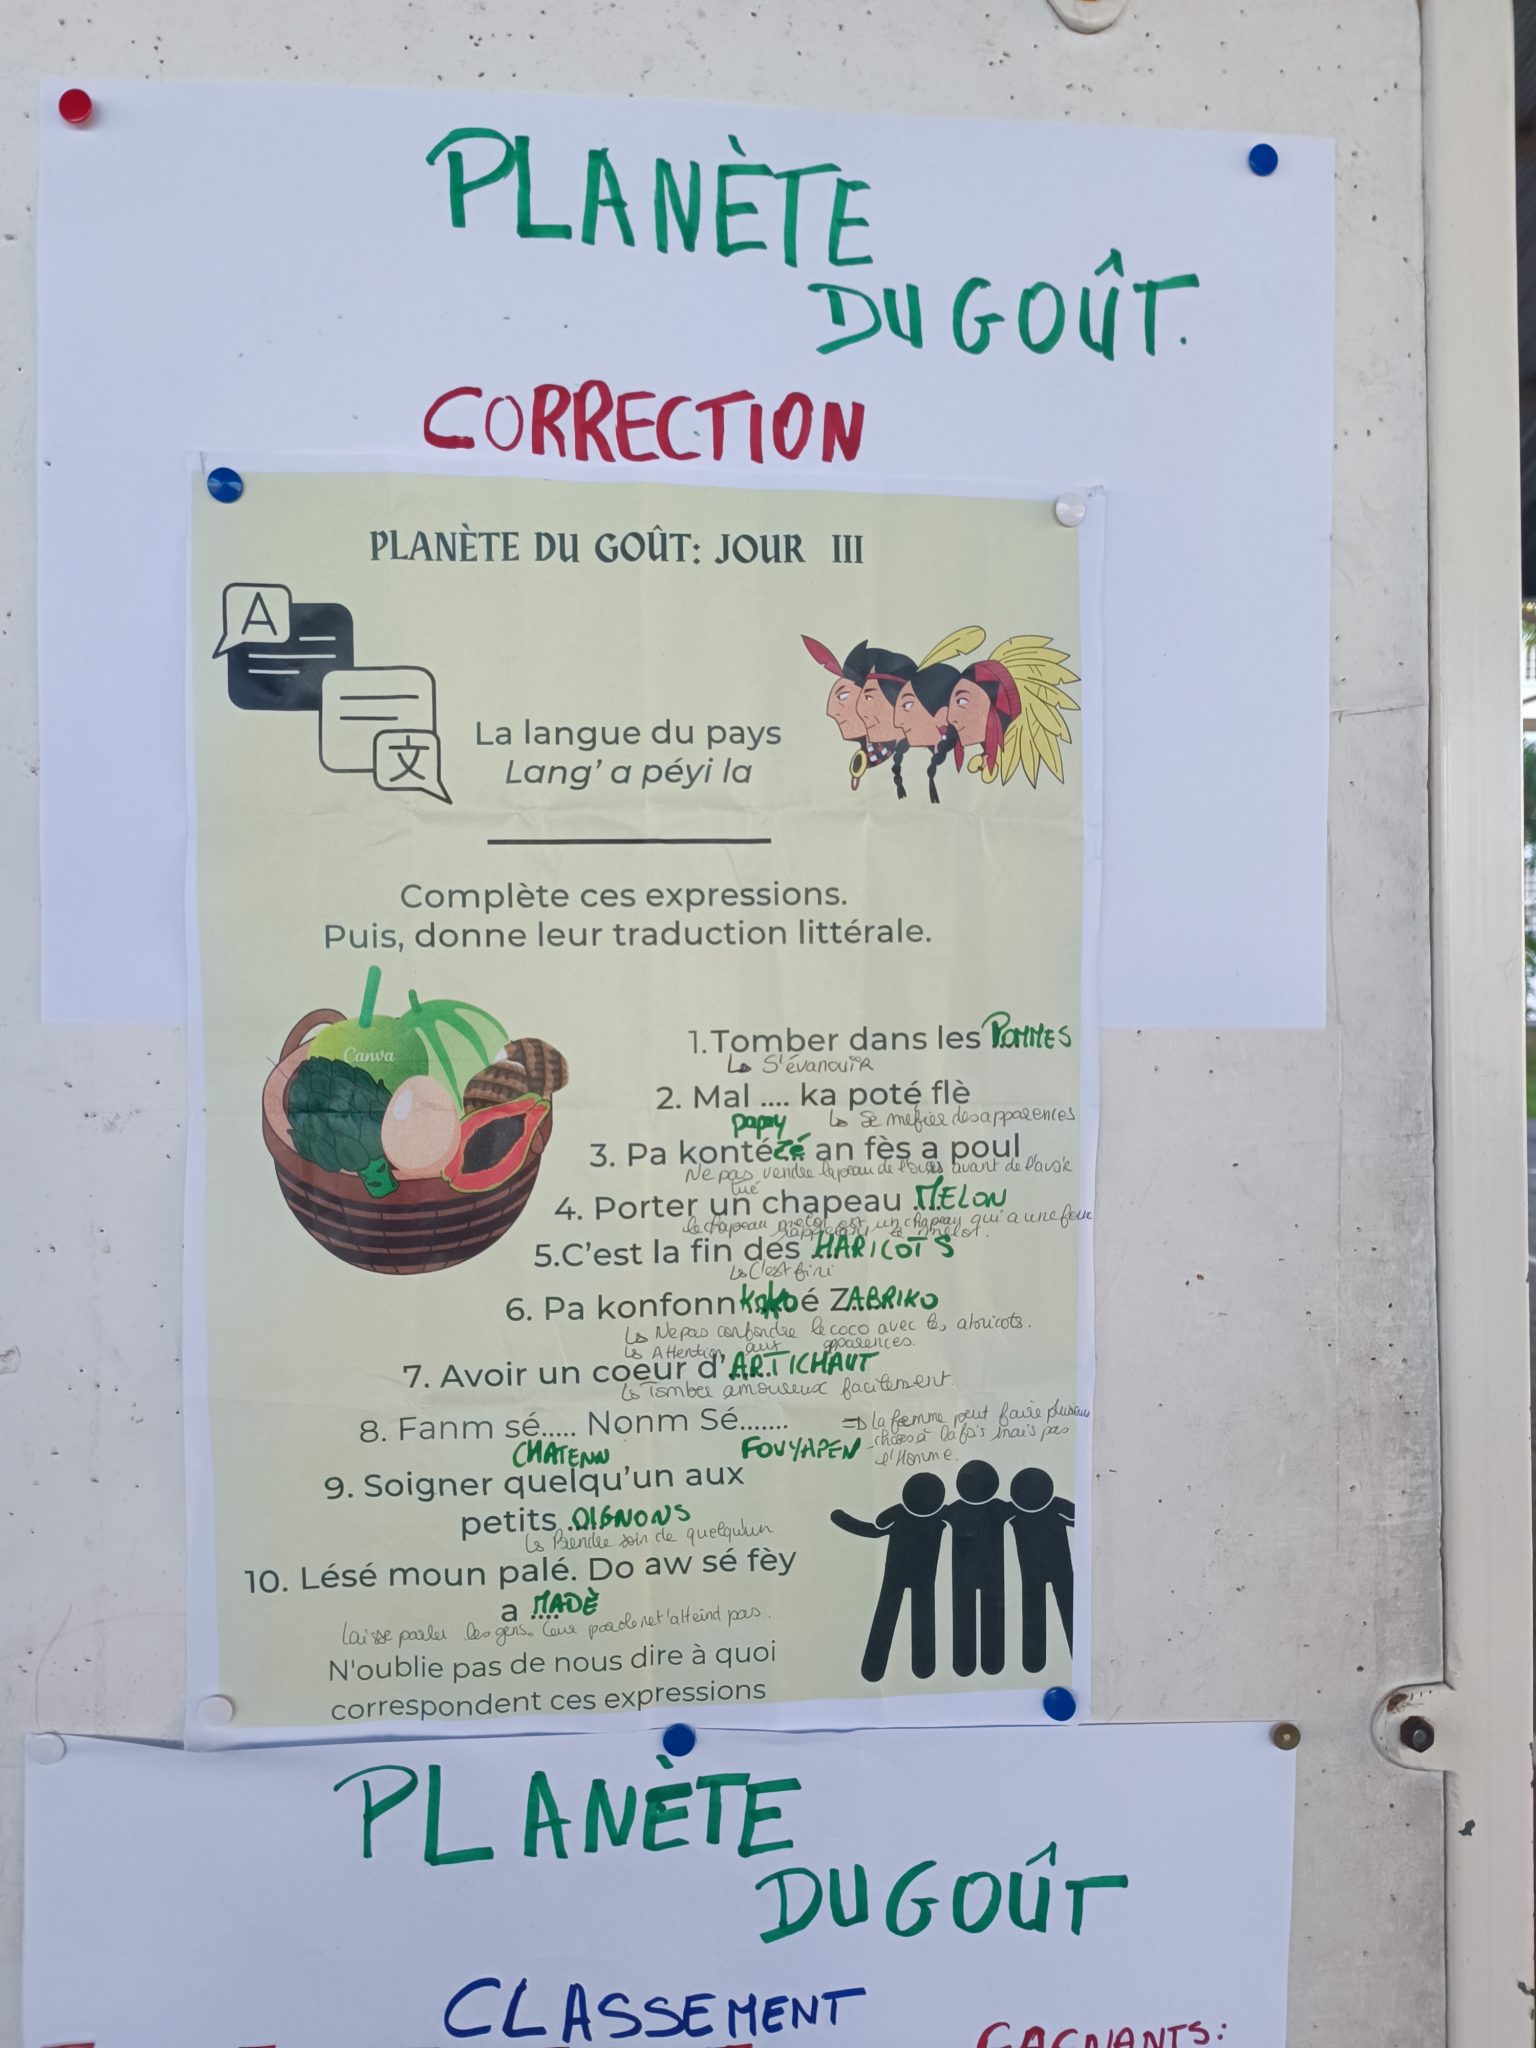 PLANÈTE
DU GOÛT.
CORRECTION
PLANÈTE DU GOÛT: JOUR III
A
文
La langue du pays
Lang' a péyi la
Complète ces expressions.
Puis, donne leur traduction littérale.
Canva
1.Tomber dans les POMMES
↳ S'évanouir
2. Mal .... ka poté flè
papay ↳ Se méfier des apparences
3. Pa konté zé an fès a poul
Ne pas vendre la peau de l'ours avant de l'avoir
tué
4. Porter un chapeau MELON
le chapeau melon est un chapeau qui a une forme
le melon.
5.C'est la fin des HARICOTS
↳ C'est fini
6. Pa konfonn koko é ZABRIKO
↳ Ne pas confondre le coco avec les abricots.
↳ Attention aux apparences.
7. Avoir un coeur d'ARTICHAUT
↳ Tomber amoureux facilement.
8. Fanm sé..... Nonm Sé.......
CHATENN FOUYAPEN
⇒ la femme peut faire plusieurs
choses à la fois mais pas
l'Homme.
9. Soigner quelqu'un aux
petits OIGNONS
↳ Prendre soin de quelqu'un
10. Lésé moun palé. Do aw sé fèy
a MADÈ
laisse parler les gens. leur parole ne t'atteind pas.
N'oublie pas de nous dire à quoi
correspondent ces expressions
PLANÈTE
DU GOÛT
CLASSEMENT
GAGNANTS: